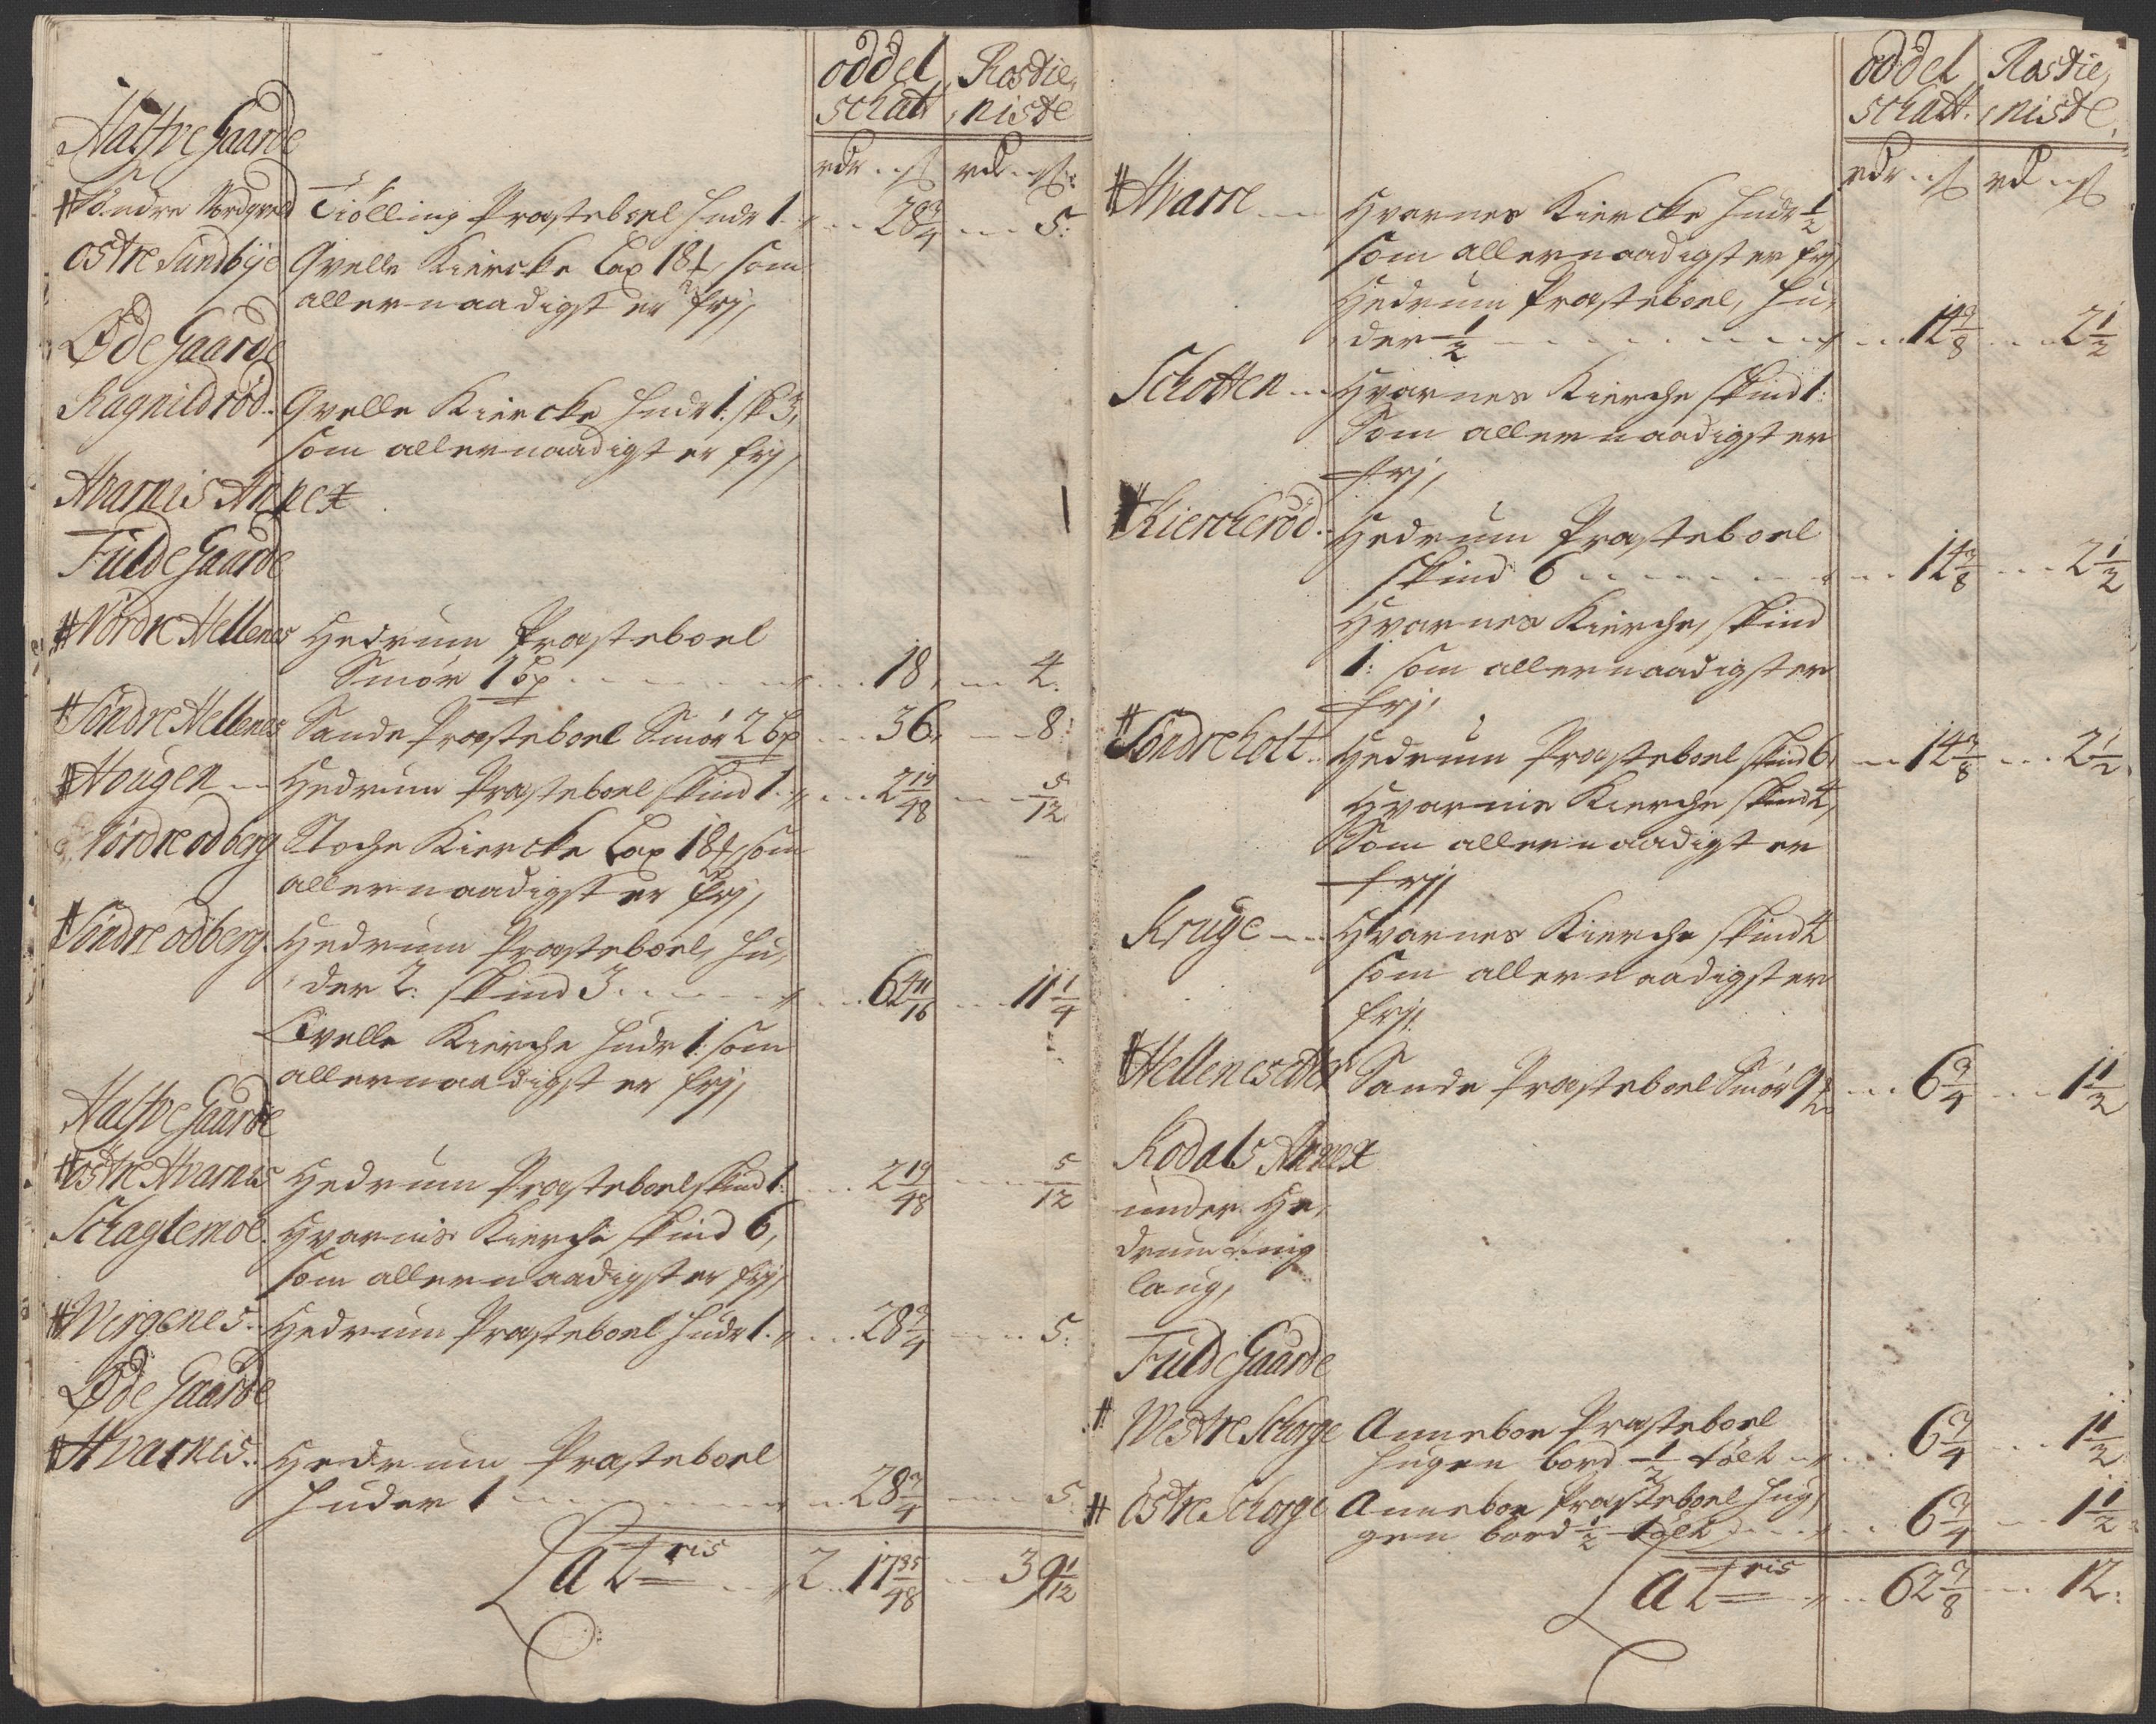 oddel Rostie,
schatt niste
Halfve Gaarde
rdr ß rd ß
# Söndre Nordqveld Tiölling Præsteboel Hudr 1 .. 28 3/4 ... 5:
Ostre Sundbÿe Qvelle Kiercke Lax 18 som
allernaadigst er frÿ
Øde Gaarde
Ragnildröd .. Qvelle Kiercke Hudr 1: sk 3,
som allernaadigt er frj
Hvarnis Annex
Fulde Gaarde
# Nordre Hellenes Hedrum Præsteboel
Smör 1 bp ... 18, ... 4.
# Söndre Hellenes Sande Præsteboel Smör 2 bp ... 36, ... 8:
# Hougen ... Hedrum Præsteboel skind 1 ... 2 19/48 ... 5/12
Nordre odberg Stoche Kiercke Lax 18 som
allernaadigst er frj
# Söndre odberg. Hedrum Præsteboel, Hu,
der 2: skind 3 ... 64 11/16 ... 11 1/4
Qvelle Kierche Hudr 1: som
allernaadigst er frj
Halfve Gaarde
# Ostre Hvarnes Hedrum Præsteboel skind 1: ... 2 19/48 ... 5/12
Schaglemoe. Hvarnis Kierche skind 6,
som allernaadigst er frj
# Wirgenes .. Hedrum Præsteboel Hudr 1. ... 28 3/4 ... 5:
Øde Gaarde
# Hvarnis .. Hedrum Præsteboel
Huder 1 ... 28 3/4 ... 5:
Latris ... 2 .. 17 35/48 ... 39 1/12
oddel Rostie,
schatt. niste,
rdr ß rd ß
# Hvarre ... Hvarnes Kiercke Hudr 1/2
som allernaadigst er frj
Hedrum Præsteboel, Hu,
der 1/2 ... 14 3/8 ... 2 1/2
Schotten ... Hvarnes Kierche skind 1:
Som allernaadigst er
frj,
# Kiercheröd .. Hedrum Præsteboel
skind 6 ... 14 3/8 ... 2 1/2
Hvarnes Kierche, skind
1: som allernaadigst er
frj,
# Söndre holt .. Hedrum Præsteboel skind 6 ... 14 3/8 ... 2 1/2
Hvarnis Kierche skind 2,
Som allernaadigt er
frÿ
Kruge ... Hvarnes Kierche skind 2
som allernaadigst er
frÿ.
# Hellenes Sande Præsteboel Smör 9 ... 6 3/4 ... 1 1/2
Kodals Annex
under He,
drum ting
laug,
Fulde Gaarde
# Westre Schorge Anneboe Præsteboel
Hugen bord 1/2 tölt ... 6 3/4 ... 1 1/2
# Ostre Schorge Anneboe Præsteboel Hug,
gen bord 1/2 tölt ... 6 3/4 ... 1 1/2
Latris ... 62 7/8 ... 12: